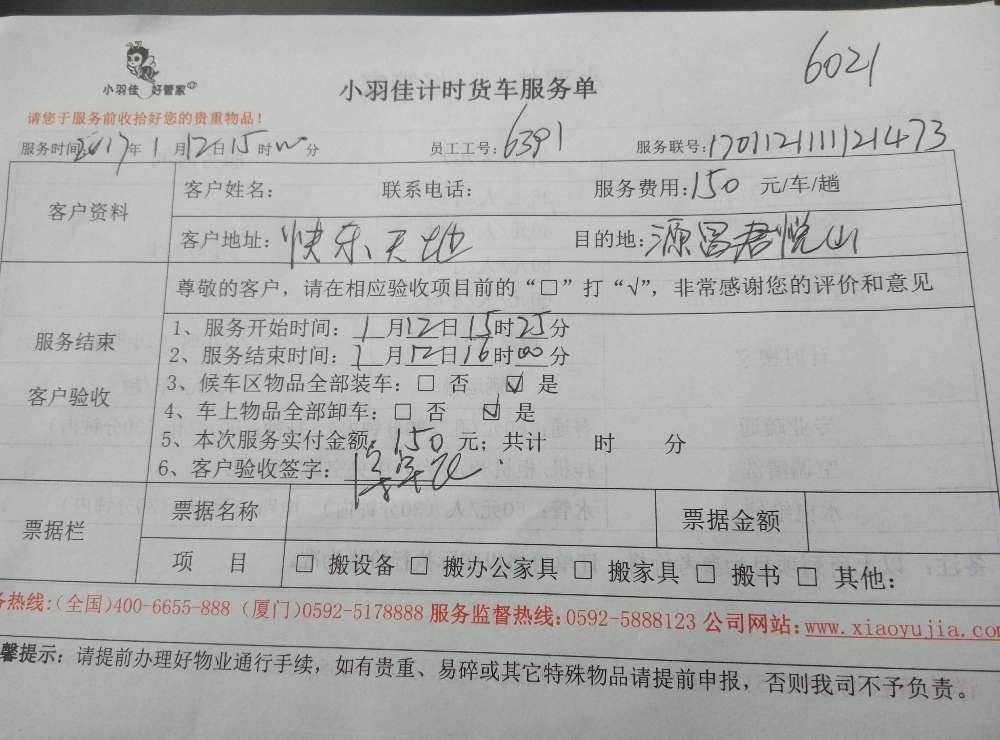 6021
小羽佳 好管家
小羽佳计时货车服务单
请您于服务前收拾好您的贵重物品！
服务时间：2017年1月12日15时00分 员工工号：6391 服务联号：170112111121473
客户资料
客户姓名： 联系电话： 服务费用：150 元/车/趟
客户地址：快乐天地 目的地：源昌君悦山
服务结束
客户验收
尊敬的客户，请在相应验收项目前的“□”打“√”，非常感谢您的评价和意见
1、服务开始时间：1月12日15时25分
2、服务结束时间：1月12日16时00分
3、候车区物品全部装车：□ 否 ☑ 是
4、车上物品全部卸车：□ 否 ☑ 是
5、本次服务实付金额：150元；共计 时 分
6、客户验收签字：
票据栏
票据名称 票据金额
项 目 □ 搬设备 □ 搬办公家具 □ 搬家具 □ 搬书 □ 其他：
务热线：(全国)400-6655-888 (厦门)0592-5178888 服务监督热线：0592-5888123 公司网站：www.xiaoyujia.com
馨提示：请提前办理好物业通行手续，如有贵重、易碎或其它特殊物品请提前申报，否则我司不予负责。